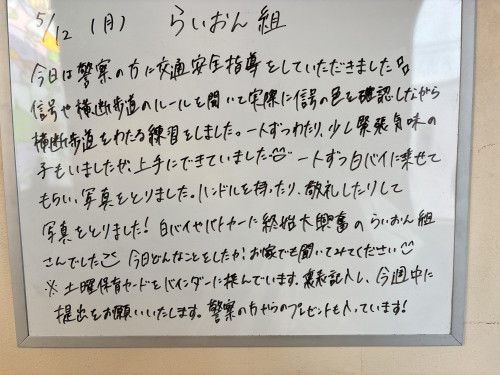 5/12 (月) らいおん組
今日は警察の方に交通安全指導をしていただきました
信号や横断歩道のルールを聞いて実際に信号の色を確認しながら
横断歩道をわたる練習をしました。一人ずつわたり、少し緊張気味の
子もいましたが、上手にできていました 一人ずつ白バイに乗せて
もらい、写真をとりました。ハンドルを持ったり、敬礼したりして
写真をとりました！白バイやパトカーに終始大興奮のらいおん組
さんでした 今日どんなことをしたか、お家でも聞いてみてください
※土曜保育カードをバインダーに挟んでいます。裏表記入し、今週中に
提出をお願いいたします。警察の方からのプレゼントも入っています！